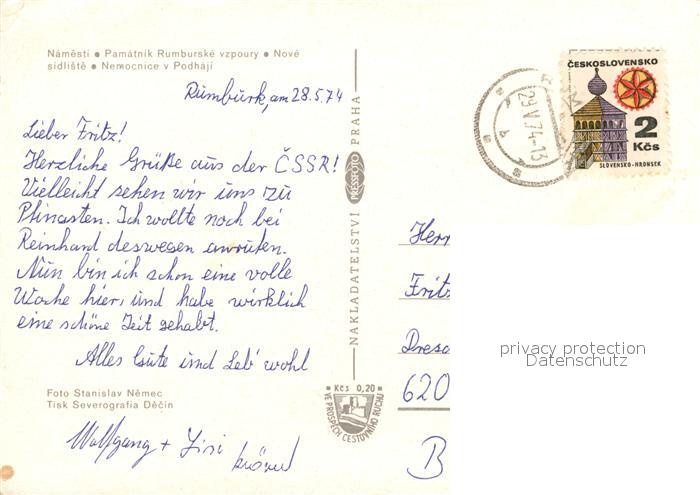 Náměstí • Památník Rumburské vzpoury • Nové
sídliště • Nemocnice v Podhájí
Rumburk, am 28.5.74
Lieber Fritz!
Herzliche Grüße aus der ČSSR!
Vielleicht sehen wir uns zu
Pfingsten. Ich wollte noch bei
Reinhard deswegen anrufen.
Nun bin ich schon eine volle
Woche hier, und habe wirklich
eine schöne Zeit gehabt.
Alles Gute und Leb' wohl
Foto Stanislav Němec
Tisk Severografia Děčín
Wolfgang +
NAKLADATELSTVÍ PRESSFOTO PRAHA
Kčs 0,20
VE PROSPĚCH CESTOVNÍHO RUCHU
29.V.74-13
ČESKOSLOVENSKO
2
Kčs
SLOVENSKO-HRONSEK
Herr
Fritz
Dresd
620
B
privacy protection
Datenschutz